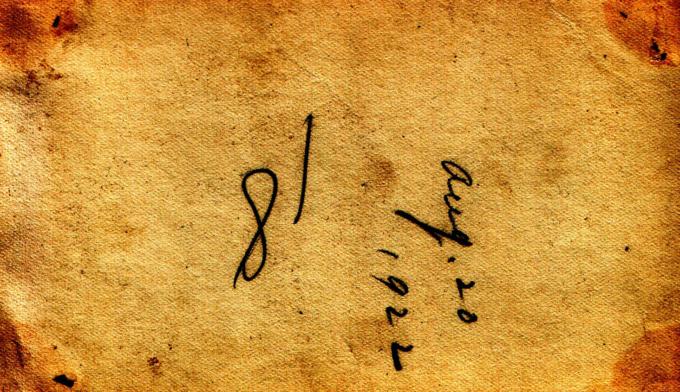 Aug. 20
1922
18